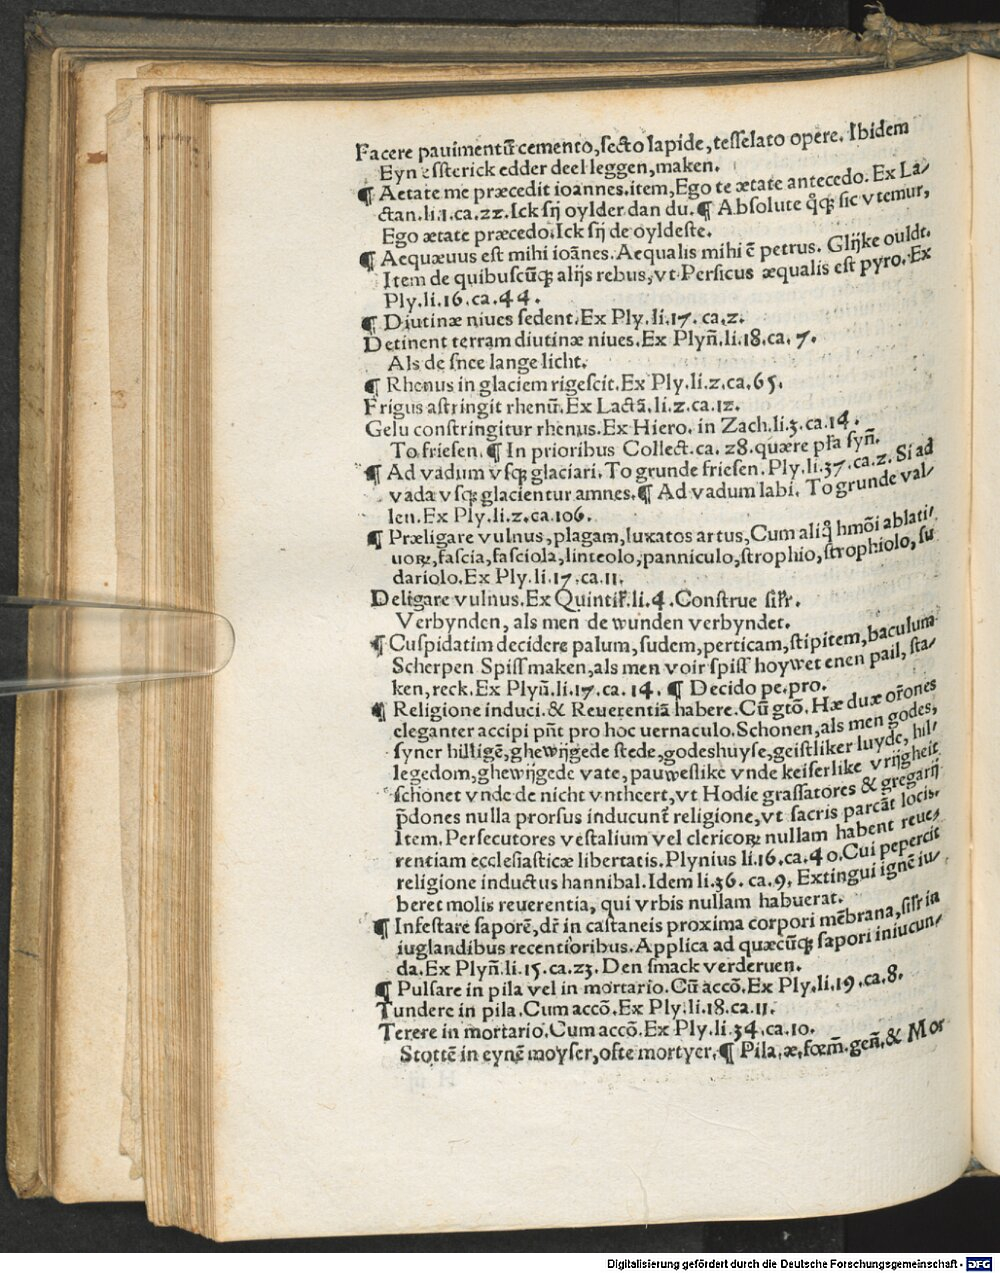 Facere pauimentū cemento, secto lapide, tesselato opere. Ibidem
Eyn essterick edder deel leggen, maken.
¶ Aetate me præcedit ioannes. item, Ego te ætate antecedo. Ex La/
ctan. li. 1. ca. 22. Ick sij oylder dan du. ¶ Absolute qͥqꝫ sic vtemur,
Ego ætate præcedo. Ick sij de oyldeste.
¶ Aequæuus est mihi ioānes. Aequalis mihi ē petrus. Glijke ouldt.
Item de quibuscūqꝫ alijs rebus, vt Persicus æqualis est pyro. Ex
Ply. li. 16. ca. 44.
¶ Diutinæ niues sedent. Ex Ply. li. 17. ca. 2.
Detinent terram diutinæ niues. Ex Plyn̄. li. 18. ca. 7.
Als de snee lange licht.
¶ Rhenus in glaciem rigescit. Ex Ply. li. 2. ca. 65.
Frigus astringit rhenū. Ex Lactā. li. 2. ca. 12.
Gelu constringitur rhenus. Ex Hiero. in Zach. li. 3. ca. 14.
To friesen. ¶ In prioribus Collect. ca. 28. quære pła syn̄.
¶ Ad vadum vsqꝫ glaciari. To grunde friesen. Ply. li. 37. ca. 2. Si ad
vada vsqꝫ glacientur amnes. ¶ Ad vadum labi. To grunde val/
len. Ex Ply. li. 2. ca. 106.
¶ Præligare vulnus, plagam, luxatos artus, Cum aliq̄ hmōi ablati/
uoꝝ, fascia, fasciola, linteolo, panniculo, strophio, strophiolo, su
dariolo. Ex Ply. li. 17. ca. 11.
Deligare vulnus. Ex Quintił. li. 4. Construe siłr.
Verbynden, als men de wunden verbyndet.
¶ Cuspidatim decidere palum, sudem, perticam, stipitem, baculum
Scherpen Spiss maken, als men voir spiss hoywet enen pail, sta/
ken, reck. Ex Plyn̄. li. 17. ca. 14. ¶ Decido pe. pro.
¶ Religione induci. & Reuerentiā habere. Cū gtō. Hæ duæ or̄ones
eleganter accipi pn̄t pro hoc uernaculo. Schonen, als men godes,
syner hilligē, ghewijgede stede, godeshuyse, geistliker luyde, hil/
legedom, ghewijgede vate, pauweslike vnde keiserlike vrijgheit
schonet vnde de nicht vntheert, vt Hodie grassatores & gregarij
p̄dones nulla prorsus inducunt̄ religione, vt sacris parcāt locis.
Item. Persecutores vestalium vel clericoꝝ nullam habent reue/
rentiam ecclesiasticæ libertatis. Plynius li. 16. ca. 40. Cui pepercit
religione inductus hannibal. Idem li. 36. ca. 9. Extingui ignē iu/
beret molis reuerentia, qui vrbis nullam habuerat.
¶ Infestare saporē, dr̄ in castaneis proxima corpori mēbrana, siłr in
iuglandibus recentioribus. Applica ad quæcūqꝫ sapori iniucun/
da. Ex Plyn̄. li. 15. ca. 23. Den smack verderuen.
¶ Pulsare in pila vel in mortario. Cū accō. Ex Ply. li. 19. ca. 8.
Tundere in pila. Cum accō. Ex Ply. li. 18. ca. 11.
Terere in mortario. Cum accō. Ex Ply. li. 34. ca. 10.
Stottē in eynē moyser, ofte mortyer. ¶ Pila, æ, fœm̄. gen̄. & Mor
Digitalisierung gefördert durch die Deutsche Forschungsgemeinschaft - DFG